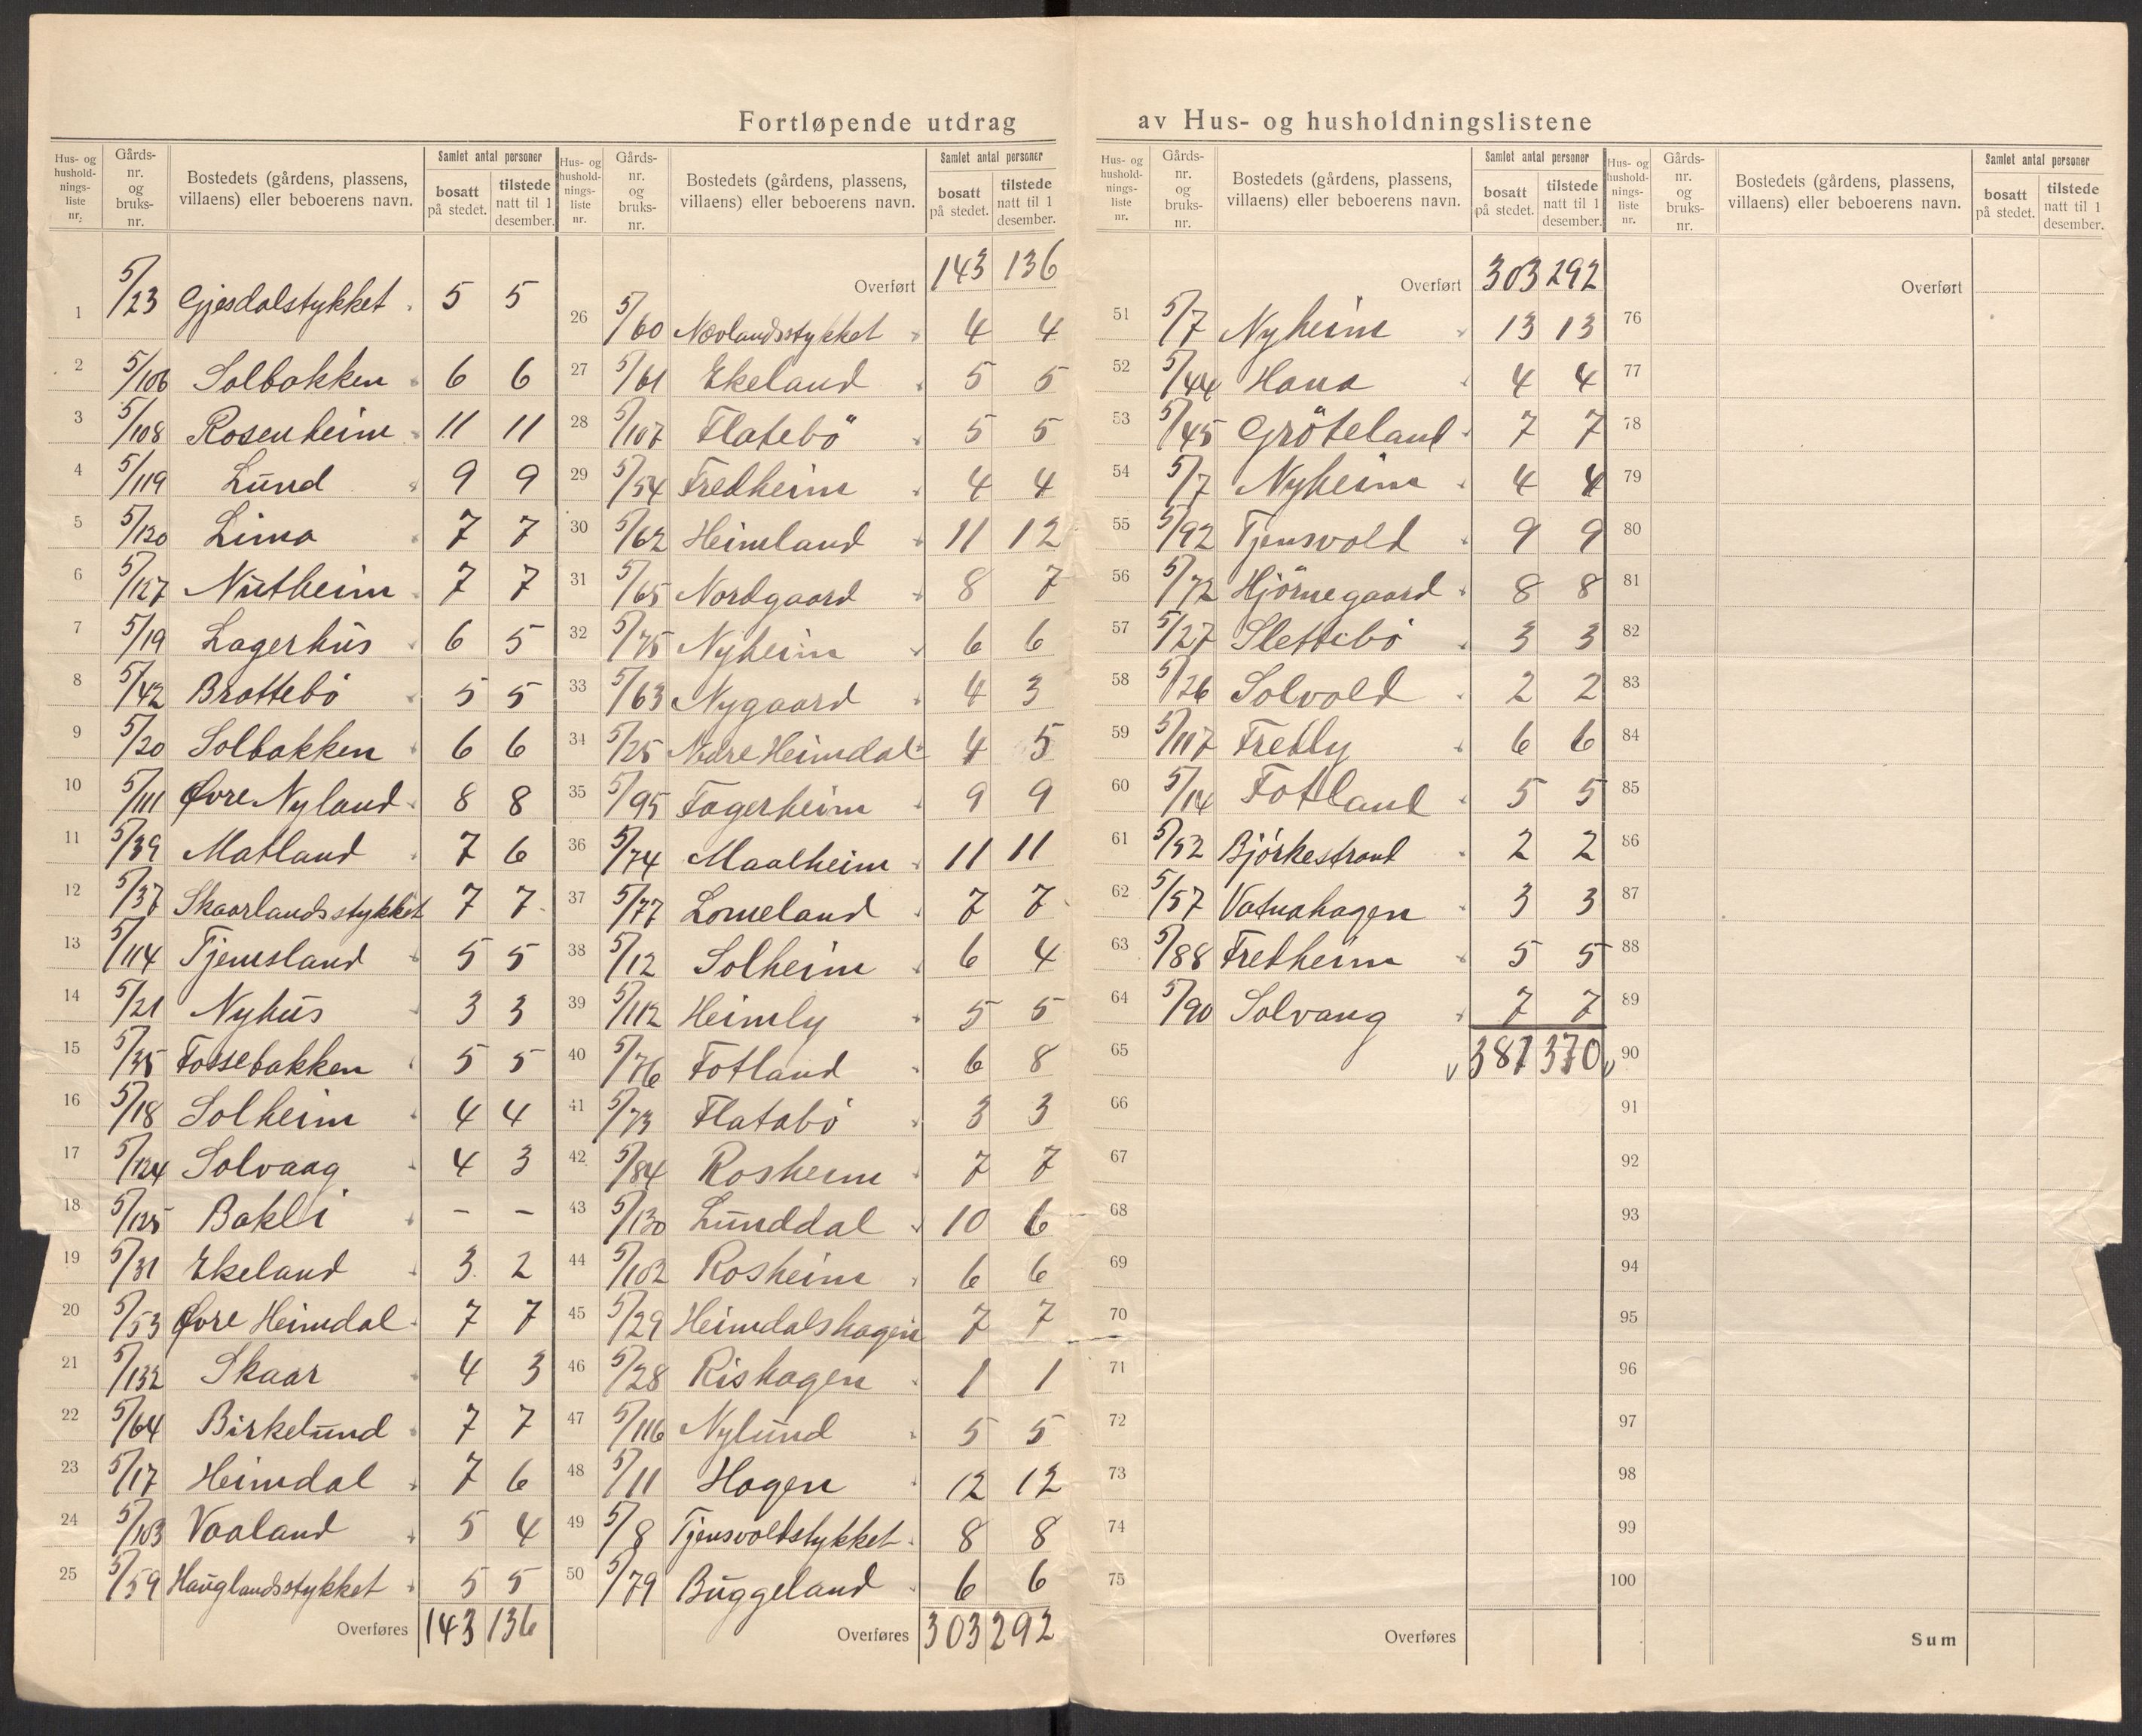 Fortløpende utdrag av Hus- og husholdningslistene
Hus- og hushold-nings-liste nr. Gårds-nr. og bruks-nr. Bostedets (gårdens, plassens, villaens) eller beboerens navn. Samlet antal personer bosatt på stedet. tilstede natt til 1 desember.
1 5/23 Gjesdalstykket 5 5
2 5/106 Solbakken 6 6
3 5/108 Rosenheim 11 11
4 5/119 Lund 9 9
5 5/120 Lima 7 7
6 5/127 Nutheim 7 7
7 5/19 Lagerhus 6 5
8 5/42 Brattebö 5 5
9 5/20 Solbakken 6 6
10 5/111 Øvre Nyland 8 8
11 5/39 Matland 7 6
12 5/37 Skaarlandsstykket 7 7
13 5/114 Tjemsland 5 5
14 5/21 Nyhus 3 3
15 5/35 Fossebakken 5 5
16 5/18 Solheim 4 4
17 5/124 Solvaag 4 3
18 5/125 Bakli - -
19 5/31 Ekeland 3 2
20 5/53 Øvre Heimdal 7 7
21 5/132 Skaar 4 3
22 5/64 Birkelund 7 7
23 5/17 Heimdal 7 6
24 5/103 Vaaland 5 4
25 5/59 Hauglandsstykket 5 5
Overføres 143 136
Hus- og hushold-nings-liste nr. Gårds-nr. og bruks-nr. Bostedets (gårdens, plassens, villaens) eller beboerens navn. Samlet antal personer bosatt på stedet. tilstede natt til 1 desember.
Overført 143 136
26 5/60 Nævlandsstykket 4 4
27 5/61 Ekeland 5 5
28 5/107 Flatebö 5 5
29 5/54 Fredheim 4 4
30 5/62 Heimland 11 12
31 5/65 Nordgaard 8 7
32 5/75 Nyheim 6 6
33 5/63 Nygaard 4 3
34 5/25 Nedre Heimdal 4 5
35 5/95 Fagerheim 9 9
36 5/74 Maalheim 11 11
37 5/77 Lomeland 7 7
38 5/12 Solheim 6 4
39 5/112 Heimly 5 5
40 5/76 Fotland 6 8
41 5/73 Flatabö 3 3
42 5/84 Rosheim 7 7
43 5/130 Lunddal 10 6
44 5/102 Rosheim 6 6
45 5/29 Heimdalshagen 7 7
46 5/28 Rishagen 1 1
47 5/116 Nylund 5 5
48 5/11 Hagen 12 12
49 5/8 Tjensvoldstykket 8 8
50 5/79 Buggeland 6 6
Overføres 303 292
Hus- og hushold-nings-liste nr. Gårds-nr. og bruks-nr. Bostedets (gårdens, plassens, villaens) eller beboerens navn. Samlet antal personer bosatt på stedet. tilstede natt til 1 desember.
Overført 303 292
51 5/7 Nyheim 13 13
52 5/44 Hana 4 4
53 5/45 Gröteland 7 7
54 5/7 Nyheim 4 4
55 5/92 Tjensvold 9 9
56 5/72 Hjörnegaard 8 8
57 5/27 Slettebö 3 3
58 5/26 Solvold 2 2
59 5/117 Fredly 6 6
60 5/14 Fotland 5 5
61 5/52 Björkestrand 2 2
62 5/57 Vatnahagen 3 3
63 5/88 Fredheim 5 5
64 5/90 Solvang 7 7
65 381 370
66
67
68
69
70
71
72
73
74
75
Overføres
Hus- og hushold-nings-liste nr. Gårds-nr. og bruks-nr. Bostedets (gårdens, plassens, villaens) eller beboerens navn. Samlet antal personer bosatt på stedet. tilstede natt til 1 desember.
Overført
76
77
78
79
80
81
82
83
84
85
86
87
88
89
90
91
92
93
94
95
96
97
98
99
100
Sum